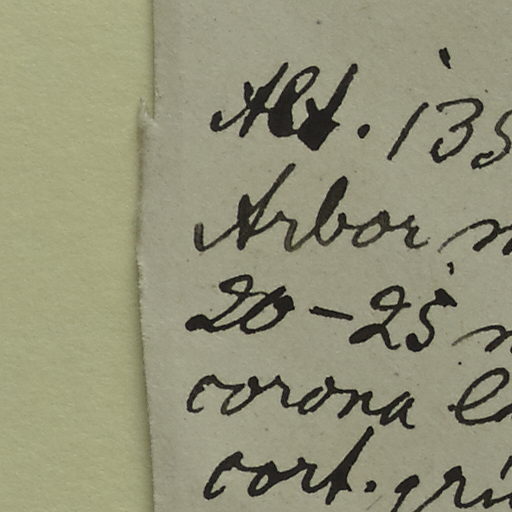 Alt. 135
Arbor
20-25
corona
cort.